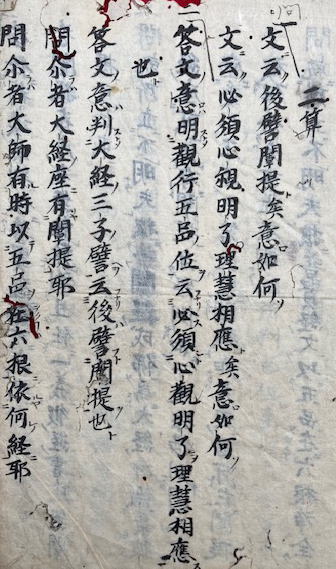 二算
文云後譬闡提矣意如何
文云必須心觀明了理慧相應矣意如何
答文意明觀行五品位云必須心觀明了理慧相應
也
答文意判大経三子譬云後譬闡提也
問尒者大経座有闡提耶
問尒者大師有時以五品在六根依何経耶